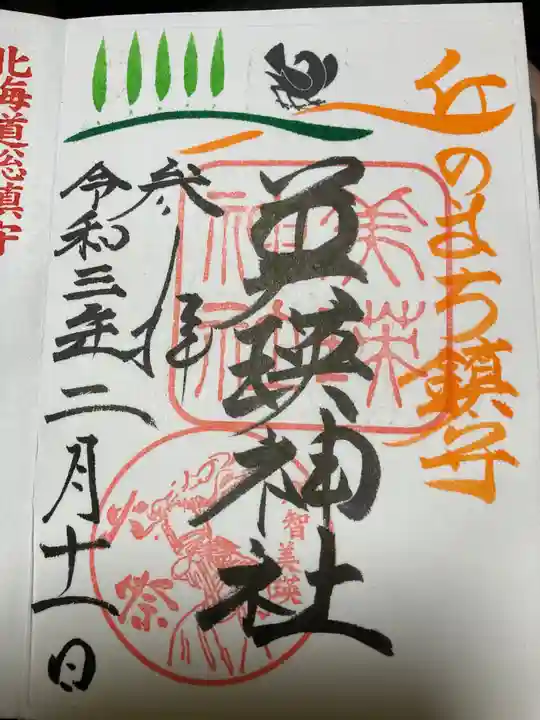 丘のまち鎮守
美瑛神社
参拝
令和三年二月十一日
北海道総鎮守
火祭
智美瑛